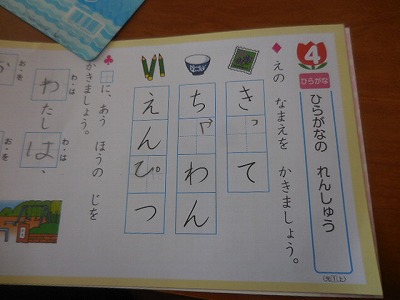 4
ひらがな
ひらがなの れんしゅう
えの なまえを かきましょう。
きって
ちゃわん
えんぴつ
に、あう ほうの じを
かきましょう。
わ・は
わたしは、
わ・は
お・を
お・を